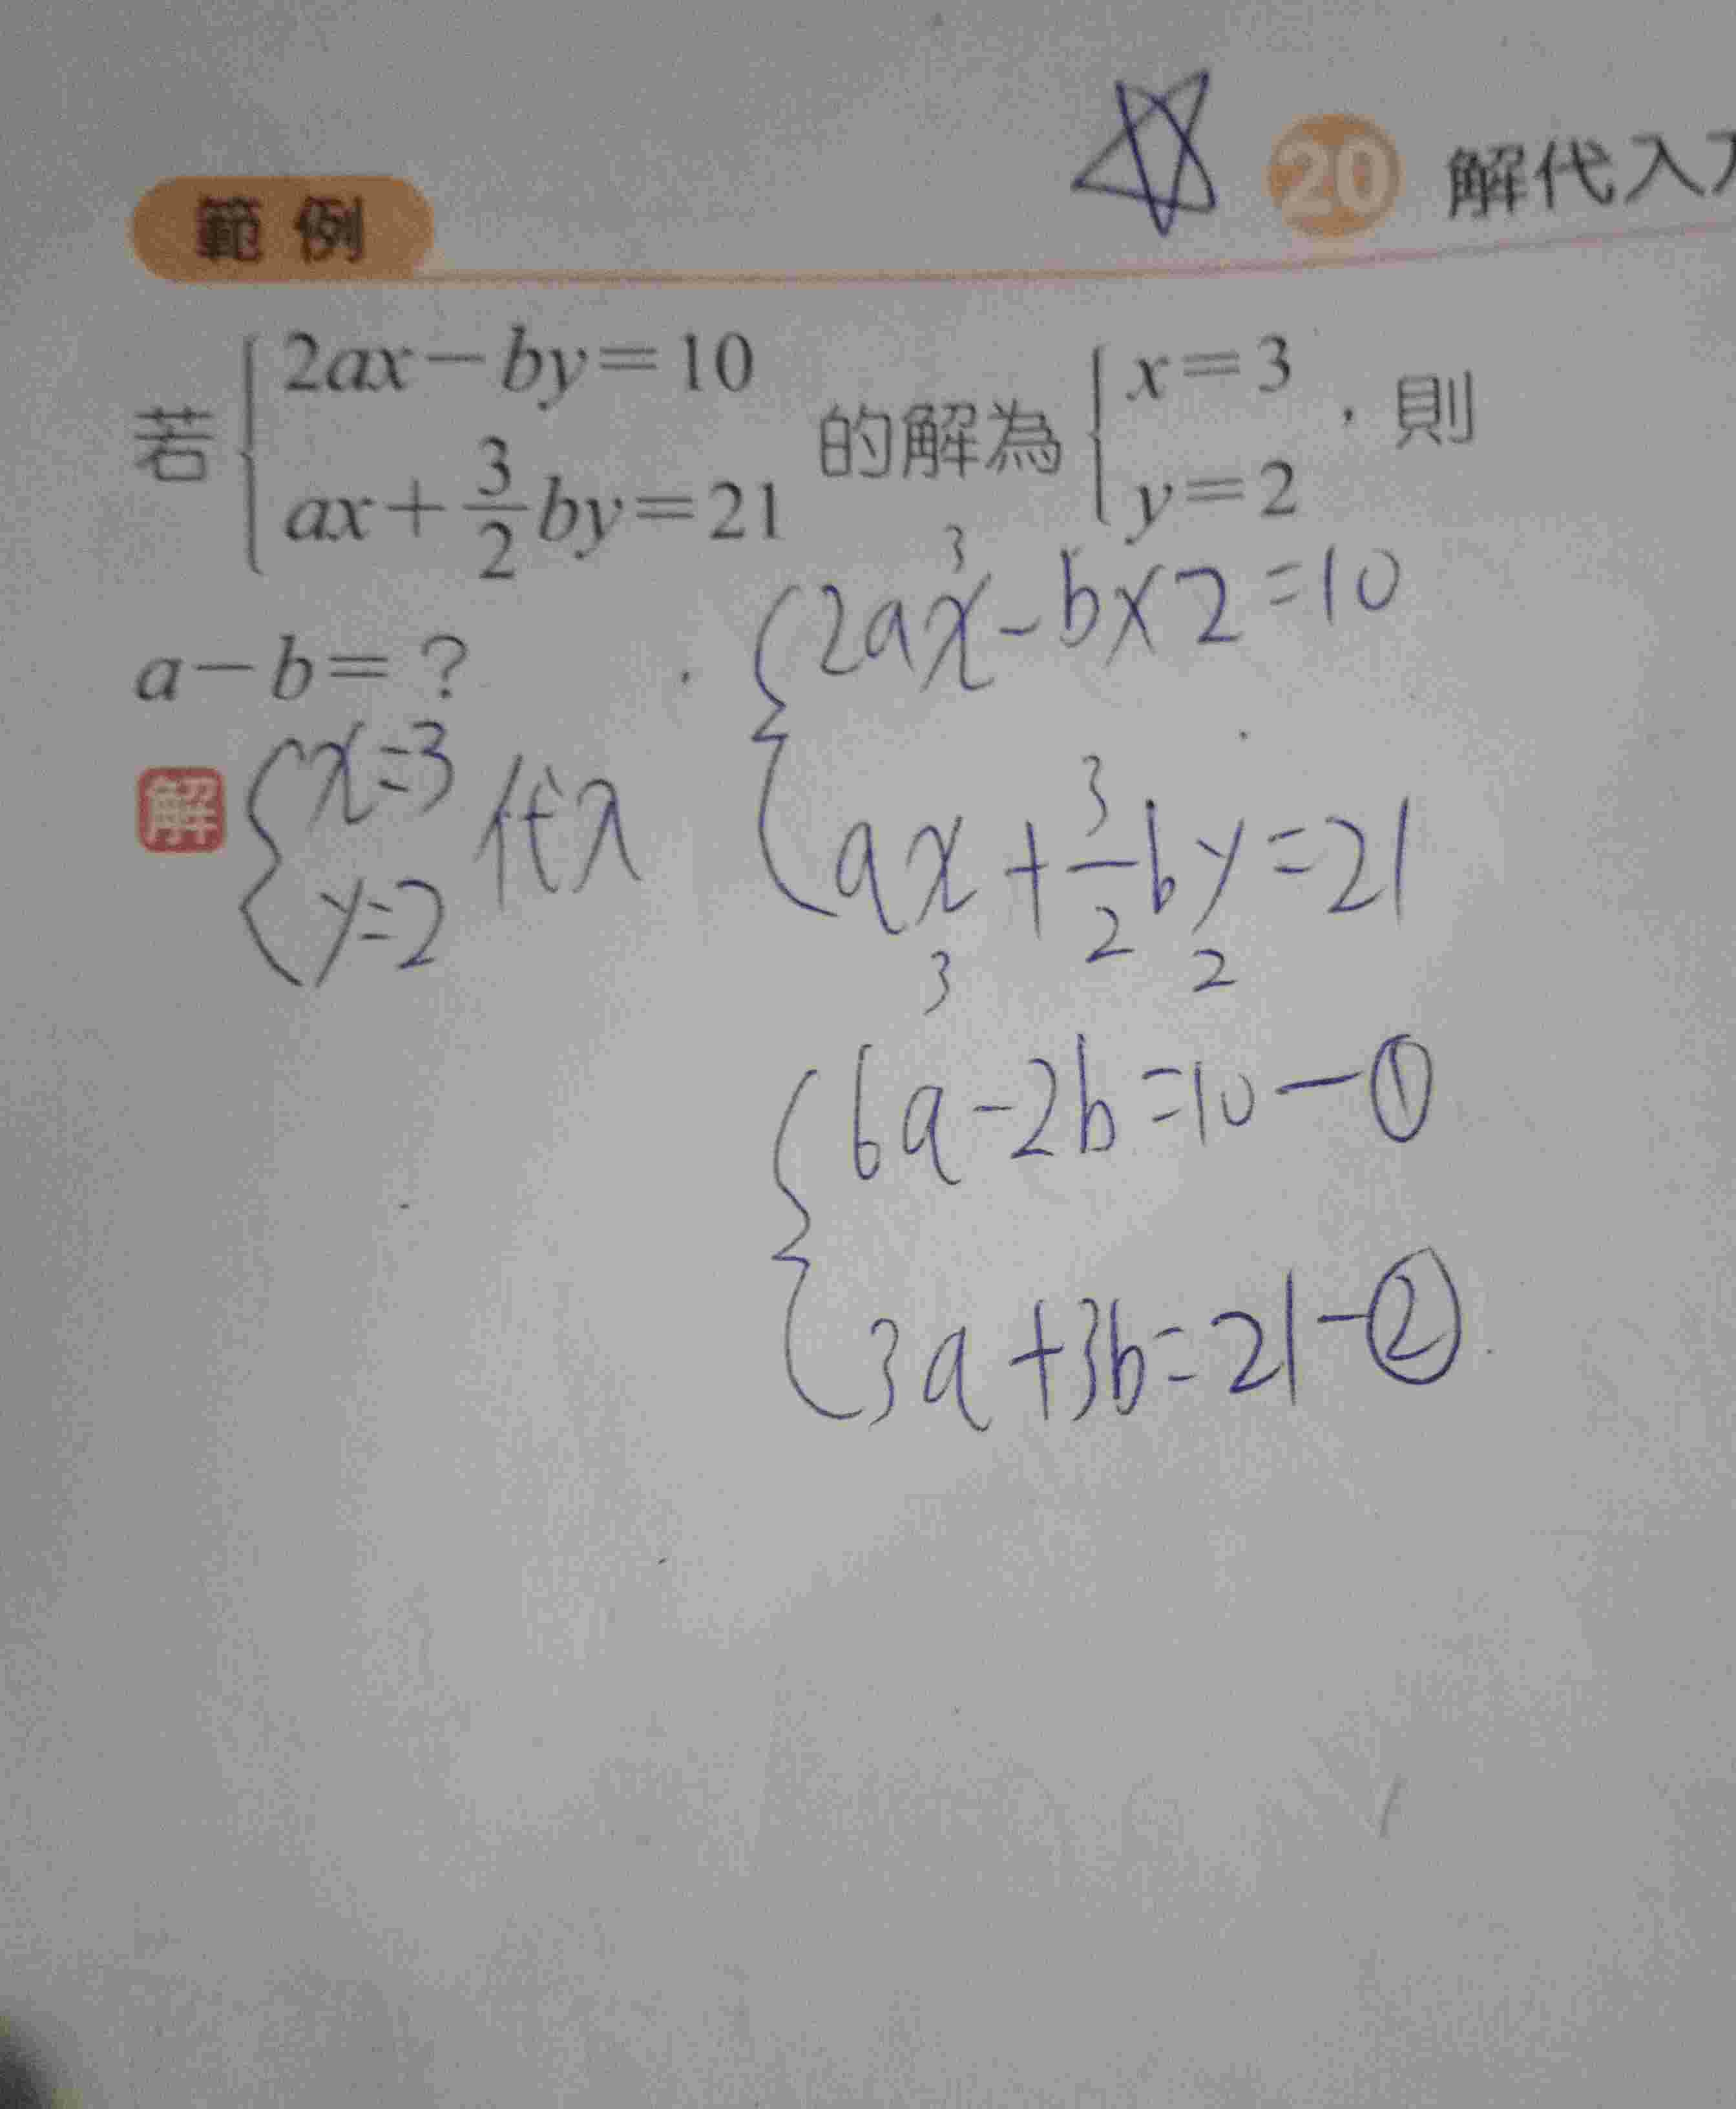 20 解代入
範例
若 { 2ax－by＝10
ax＋3/2by＝21 的解為 { x＝3
y＝2 ，則
a－b＝？
解 { x=3
y=2 代入
{ 2ax³-b×2=10
ax+3/2by=21
3 2
{ 6a-2b=10-①
3a+3b=21-②